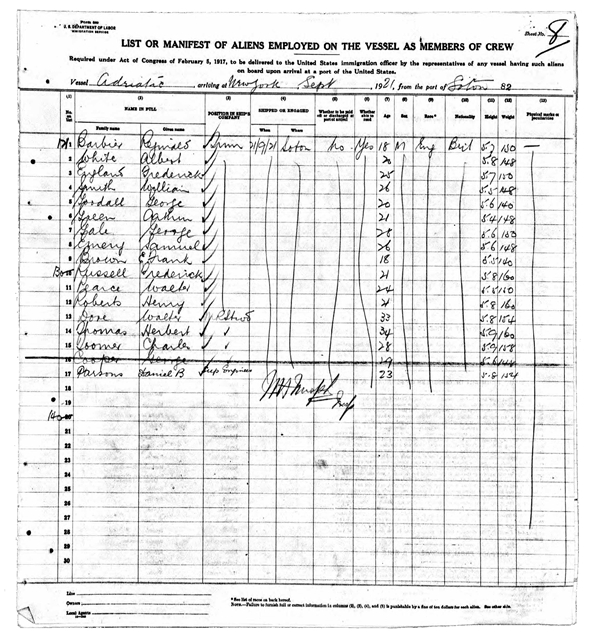 Form 680
U. S. DEPARTMENT OF LABOR
IMMIGRATION SERVICE
Sheet No. 8
LIST OR MANIFEST OF ALIENS EMPLOYED ON THE VESSEL AS MEMBERS OF CREW
Required under Act of Congress of February 5, 1917, to be delivered to the United States immigration officer by the representatives of any vessel having such aliens
on board upon arrival at a port of the United States.
Vessel Adriatic, arriving at New York Sept, 1921, from the port of Soton 82
(1) (2) (3) (4) (5) (6) (7) (8) (9) (10) (11) (12) (13)
NAME IN FULL POSITION IN SHIP'S COMPANY SHIPPED OR ENGAGED Whether to be paid off or discharged at port of arrival Whether able to read Age Sex Race* Nationality Height Weight Physical marks or peculiarities
Family name Given name When Where
Barbier Reginald 21/9/21 Soton No Yes 18 M Eng Brit 5.7 150 —
2 White Albert 20 5.8 148
3 England Frederick 25 5.7 150
4 Smith William 26 5.5 148
5 Goodall George 20 5.6 140
6 Green Arthur 21 5.4 148
7 Gale George 28 5.6 150
8 Emery Samuel 26 5.6 148
9 Brown E Frank 18 5.5 140
Russell Frederick 21 5.8 160
11 Pearce Walter 24 5.5 150
12 Roberts Henry 21 5.8 160
13 Dore Walter 33 5.8 154
14 Thomas Herbert 34 5.9 160
15 Loomer Charles 28 5.9 158
16 Cooper George 29 5.6 144
17 Parsons Daniel B 23 5.8 154
18
19
20
21
22
23
24
25
26
27
28
29
30
Line
Owners
Local Agents
* See list of races on back hereof.
NOTE.—Failure to furnish full or correct information in columns (2), (3), (4), and (5) is punishable by a fine of ten dollars for each alien. See other side.